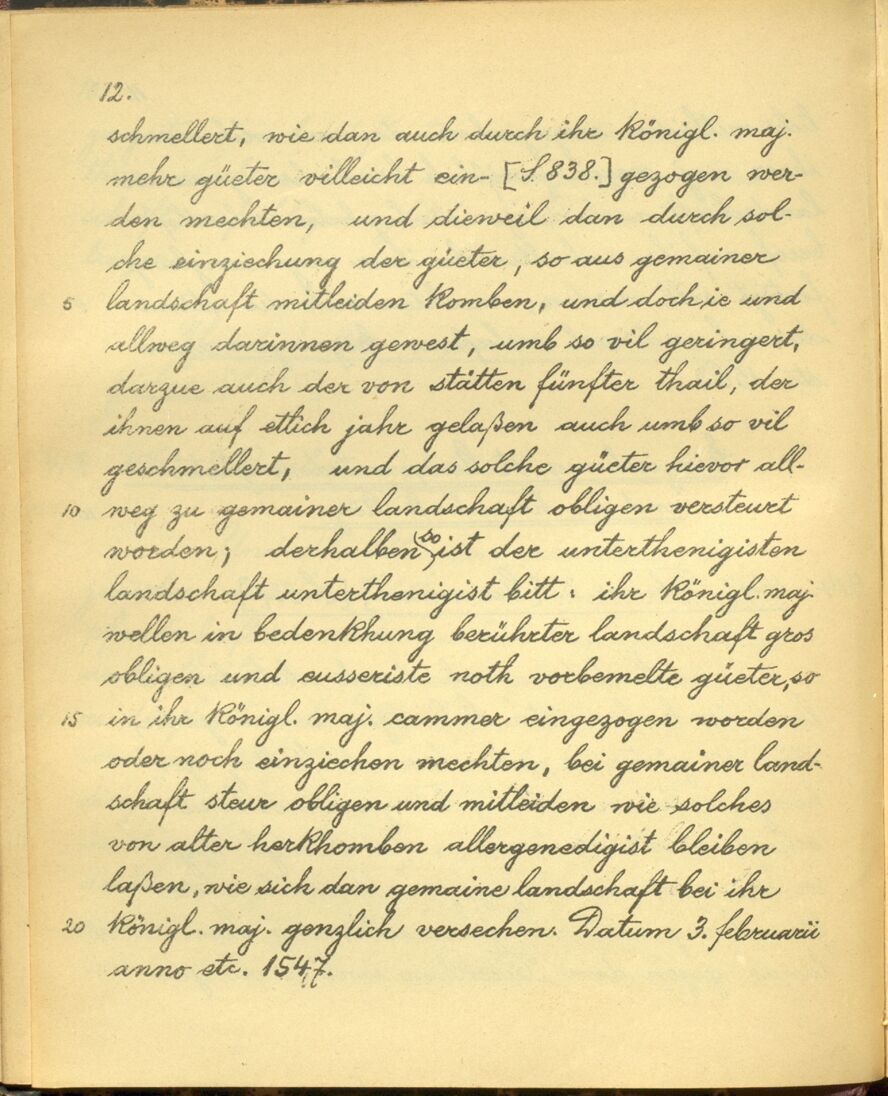 12.
schmellert, wie dan auch durch ihr königl. maj.
mehr güeter villeicht ein- [S. 838.] gezogen wer-
den mechten, und dieweil dan durch sol-
che einziechung der güeter, so aus gemainer
5 landschaft mitleiden komben, und doch ie und
allweg darinnen gewest, umb so vil geringert,
darzue auch der von stätten fünfter thail, der
ihnen auf etlich jahr gelaßen auch umb so vil
geschmellert, und das solche güeter hievor all-
10 weg zu gemainer landschaft obligen versteurt
worden; derhalben so ist der unterthenigisten
landschaft unterthenigist bitt: ihr königl. maj.
wellen in bedenkhung berührter landschaft gros
obligen und eusseriste noth vorbemelte güeter, so
15 in ihr königl. maj. cammer eingezogen worden
oder noch einziechen mechten, bei gemainer land-
schaft steur obligen und mitleiden wie solches
von alter herkhomben allergenedigist bleiben
laßen, wie sich dan gemaine landschaft bei ihr
20 königl. maj. genzlich versechen. Datum 3. februarii
anno etc. 1547.